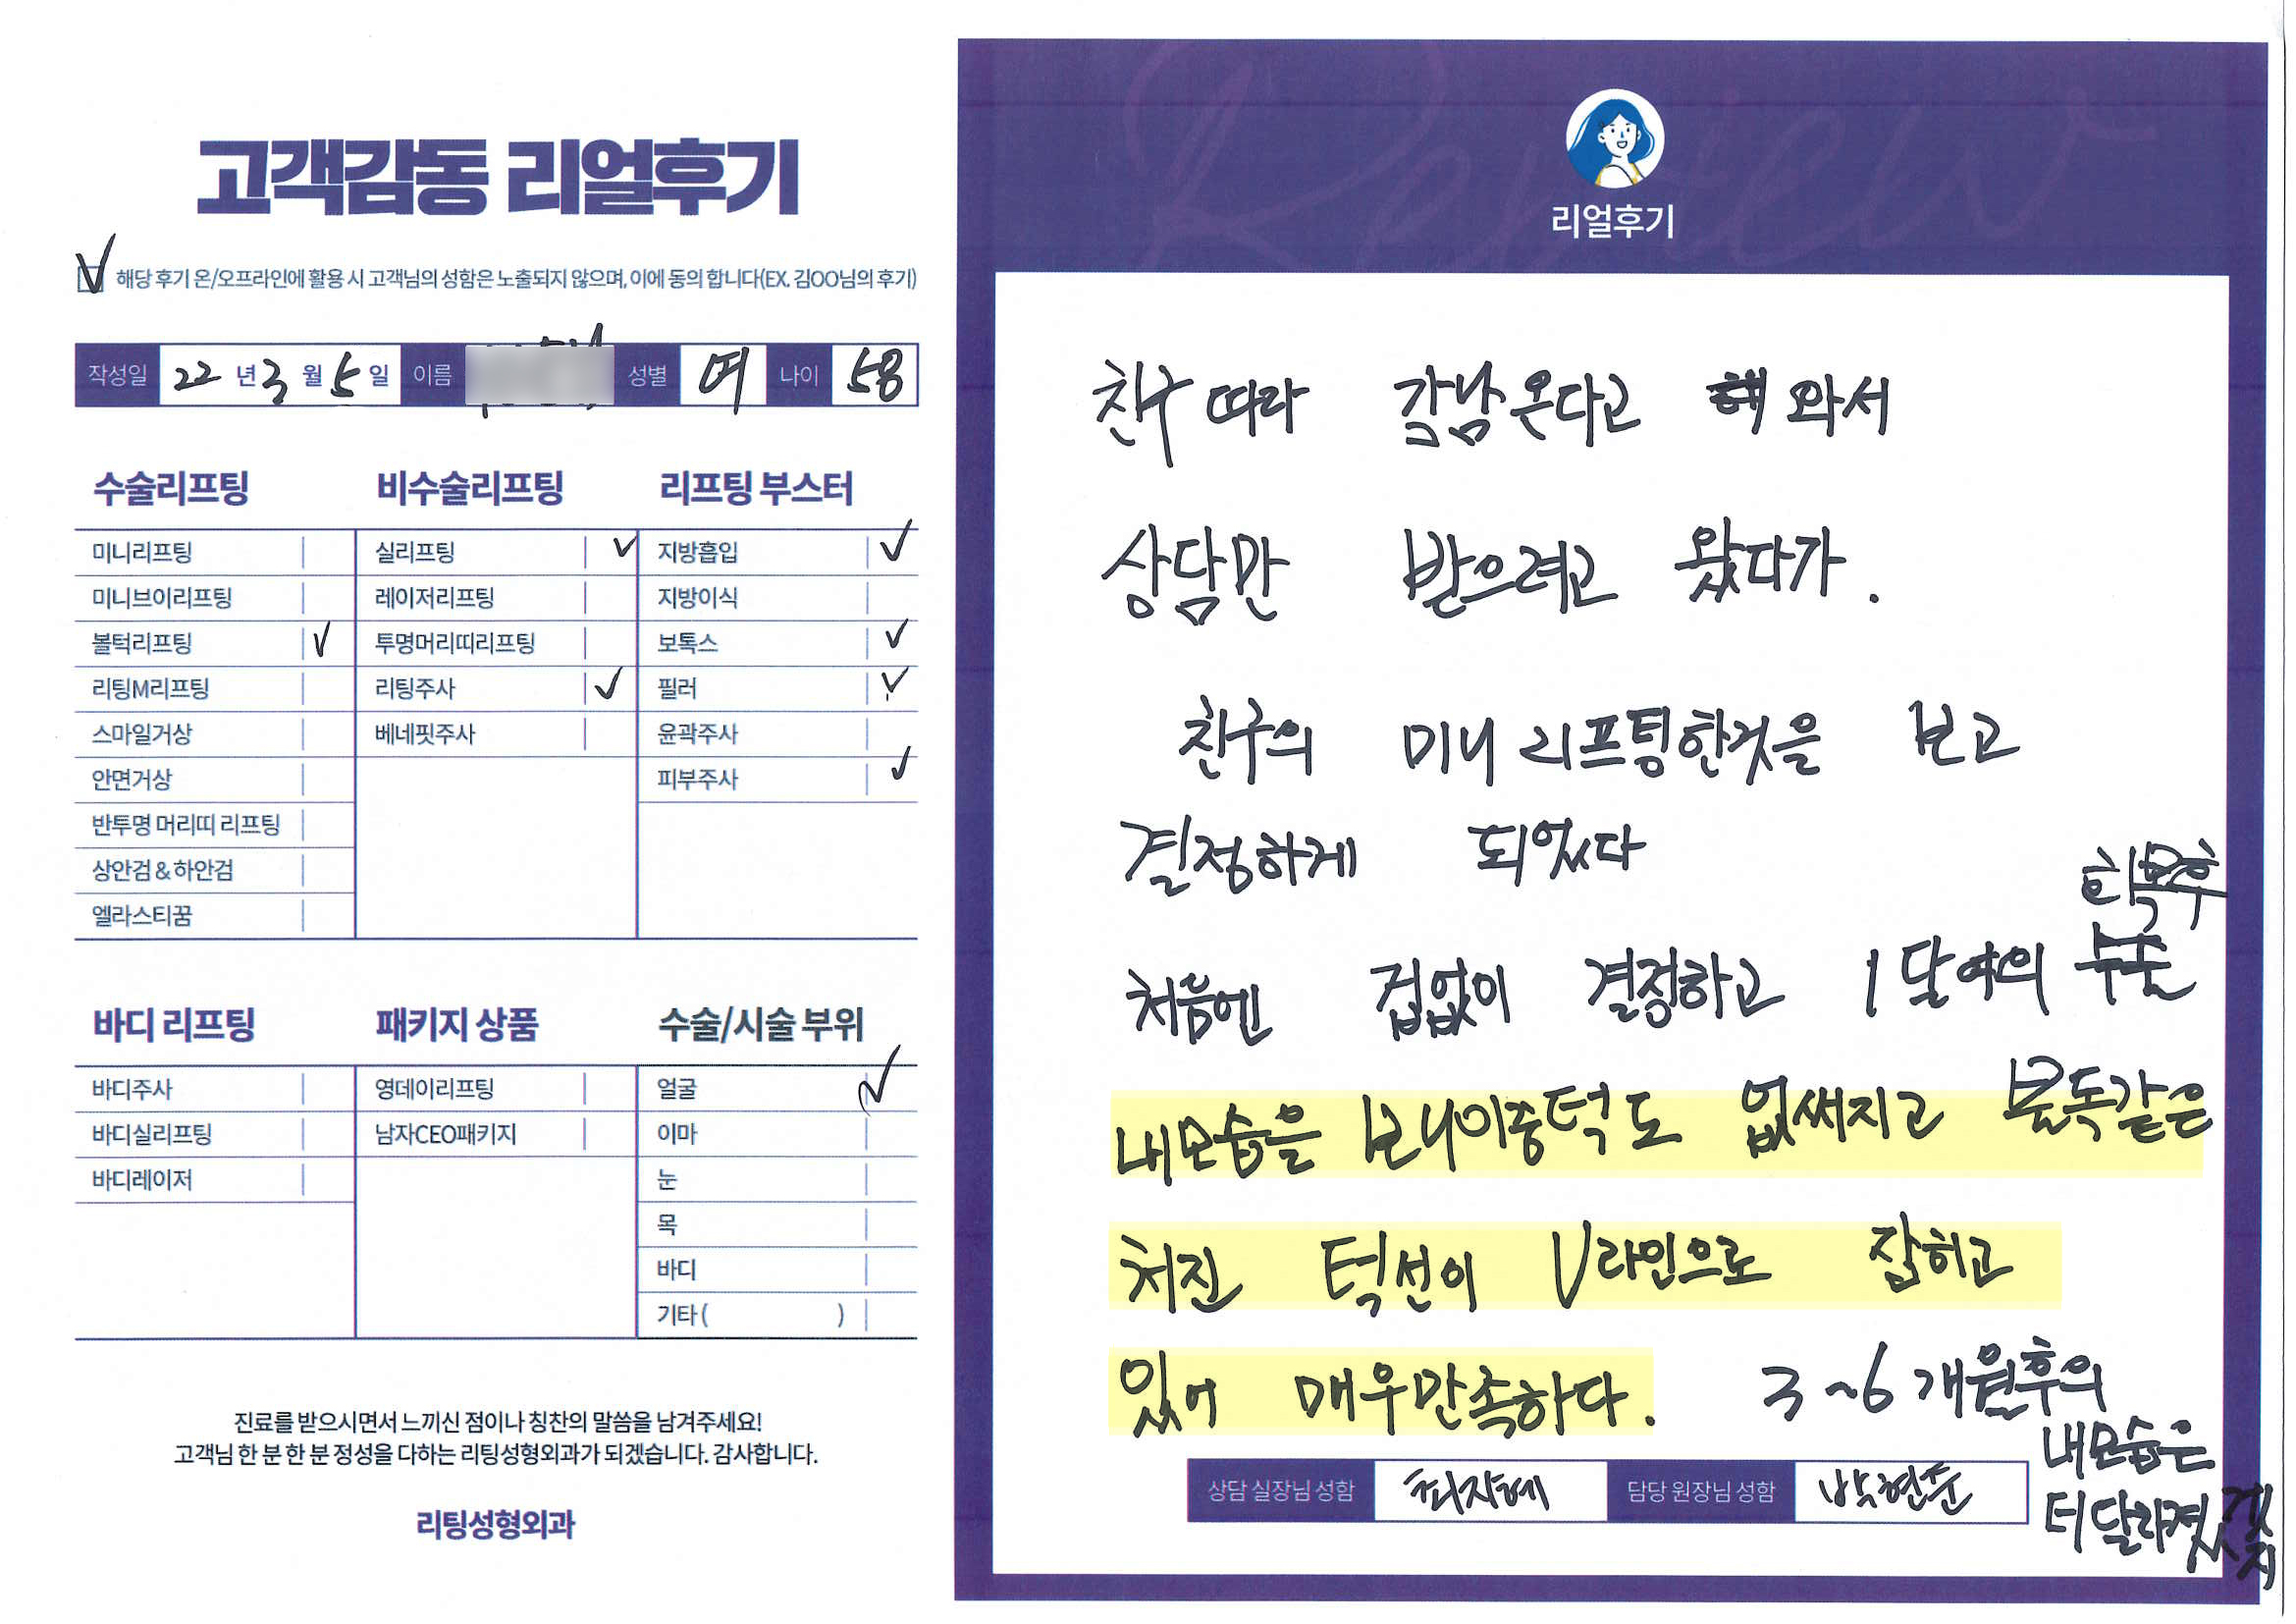 고객감동 리얼후기
해당 후기 온/오프라인에 활용 시 고객님의 성함은 노출되지 않으며, 이에 동의 합니다(EX. 김OO님의 후기)
작성일 22년 3월 5일 이름 성별 여 나이 58
수술리프팅
미니리프팅
미니브이리프팅
볼턱리프팅 ✓
리팅M리프팅
스마일거상
안면거상
반투명 머리띠 리프팅
상안검 & 하안검
엘라스티꿈
비수술리프팅
실리프팅 ✓
레이저리프팅
투명머리띠리프팅
리팅주사 ✓
베네핏주사
리프팅 부스터
지방흡입 ✓
지방이식
보톡스 ✓
필러 ✓
윤곽주사
피부주사 ✓
바디 리프팅
바디주사
바디실리프팅
바디레이저
패키지 상품
영데이리프팅
남자CEO패키지
수술/시술 부위
얼굴 ✓
이마
눈
목
바디
기타 ( )
진료를 받으시면서 느끼신 점이나 칭찬의 말씀을 남겨주세요!
고객님 한 분 한 분 정성을 다하는 리팅성형외과가 되겠습니다. 감사합니다.
리팅성형외과
리얼후기
친구 따라 강남온다고 해 와서
상담만 받으려고 왔다가.
친구의 미니 리프팅한것을 보고
결정하게 되었다
처음엔 겁없이 결정하고 1달여의
내모습을 보니 이중턱도 없써지고 볼독같은
처진 턱선이 V라인으로 잡히고
있어 매우만족하다. 3~6개월후의
내모습은
더달라졌겠지
상담 실장님 성함 담당 원장님 성함 박현준